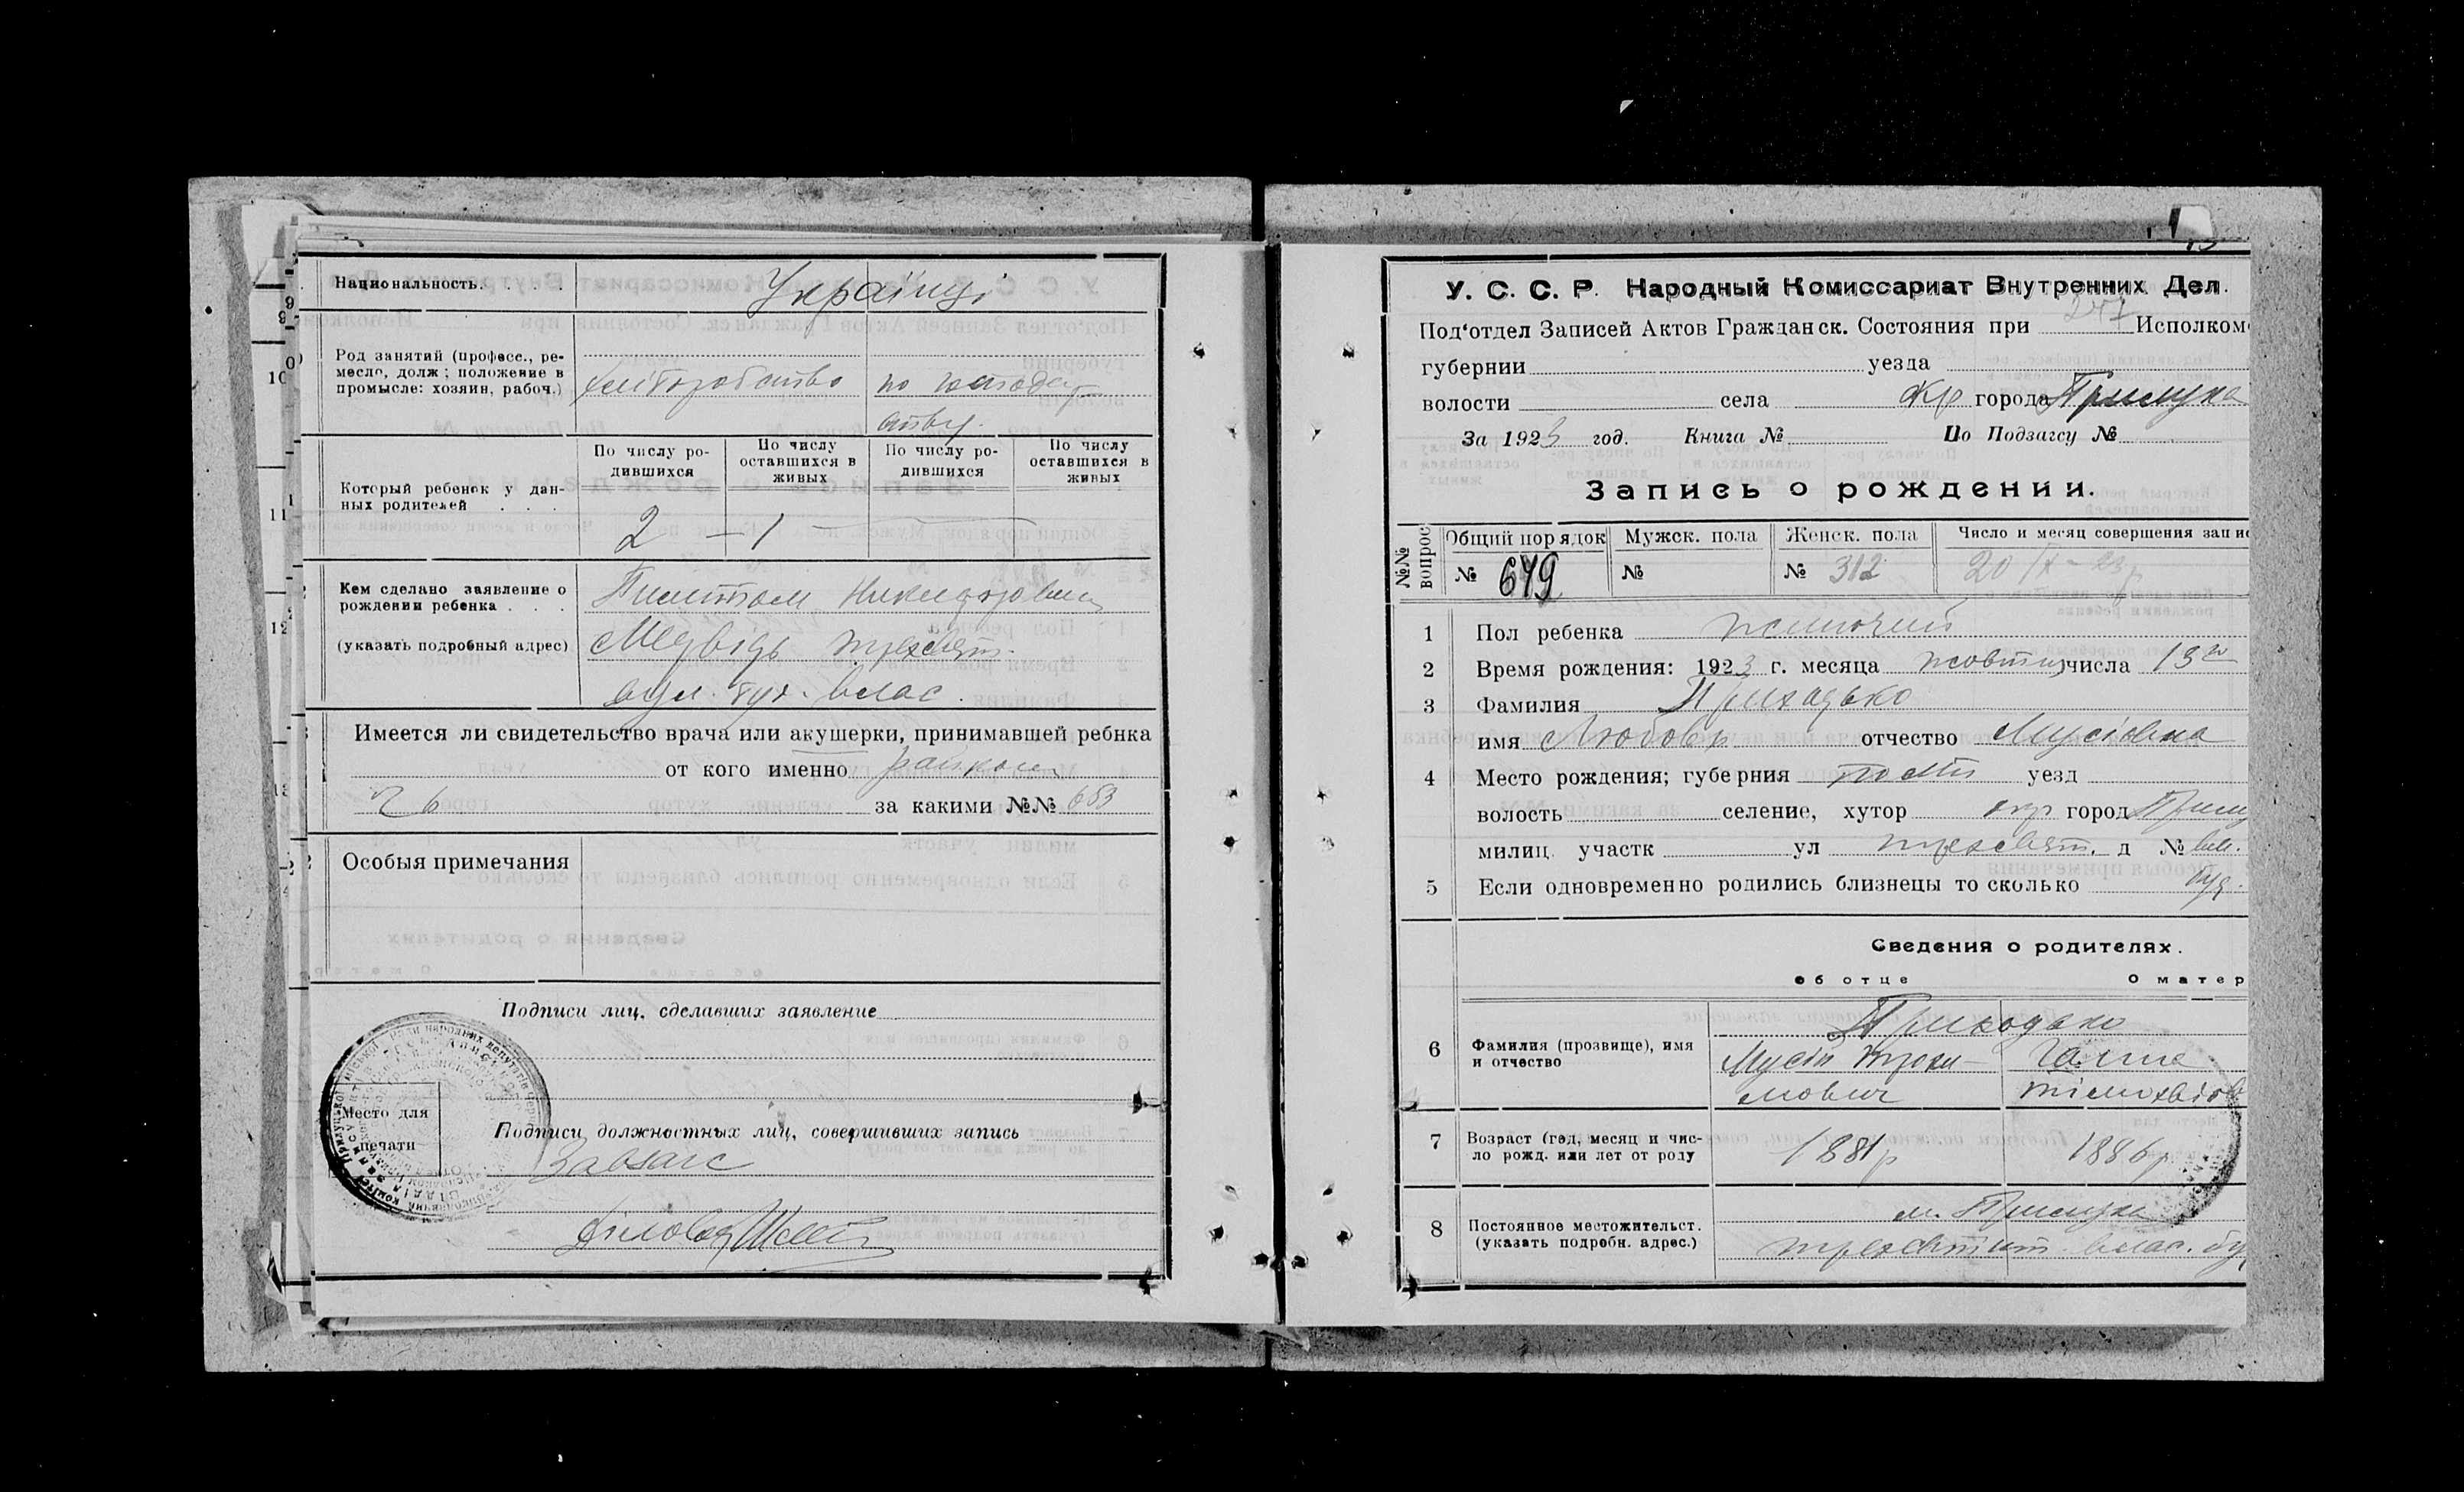 Национальность. . . . Українці
Род занятий (професс., ре-
месло, долж; положение в
промысле: хозяин, рабоч.)
хліборобство по господар
ству.
Который ребенок у дан-
ных родителей . . .
По числу ро-
дившихся
По числу
оставшихся в
живых
По числу ро-
дившихся
По числу
оставшихся в
живых
2 — 1
Кем сделано заявление о
рождении ребенка . . .
(указать подробный адрес)
Никифорович
Медвідь трехсвят.
вул. буд. влас.
Имеется ли свидетельство врача или акушерки, принимавшей ребнка
от кого именно
за какими №№ 653
Особыя примечания
Подписи лиц, сделавших заявление
Место для
печати
Подписи должностных лиц, совершивших запись
Завзагс
Діловод
У. С. С. Р. Народный Комиссариат Внутренних Дел.
Под'отдел Записей Актов Гражданск. Состояния при 247 Исполком
губернии уезда
волости села окр города Прилука
За 1923 год. Книга № По Подзагсу №
Запись о рождении.
№№ вопрос
Общий порядок Мужск. пола Женск. пола Число и месяц совершения запис
№ 649 № № 312 20/X-23р
1 Пол ребенка жиночий
2 Время рождения: 1923 г. месяца жовтня числа 13го
3 Фамилия Приходько
имя Любовь отчество Мусіовна
4 Место рождения; губерния Полт уезд
волость селение, хутор окр город Прилу
милиц. участк ул трехсвят. д № вл.
5 Если одновременно родились близнецы то сколько буд.
Сведения о родителях.
об отце О матер
6 Фамилия (прозвище), имя
и отчество
Приходько
Мусій Трохи-
мович
Ганна
Тімохвіов
7 Возраст (год, месяц и чис-
ло рожд. или лет от роду
1881р 1886р.
8 Постоянное местожительст.
(указать подробн. адрес.)
м. Прилука
трехсвятит. влас. бу